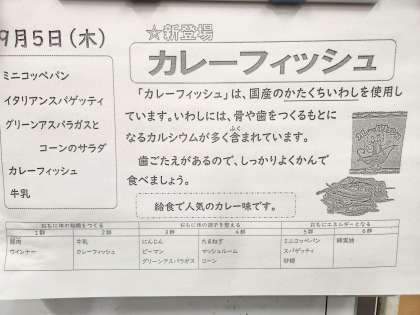 ☆新登場
9月5日(木)
カレーフィッシュ
ミニコッペパン
イタリアンスパゲッティ
グリーンアスパラガスと
コーンのサラダ
カレーフィッシュ
牛乳
「カレーフィッシュ」は、国産のかたくちいわしを使用し
ています。いわしには、骨や歯をつくるもとに
なるカルシウムが多く含まれています。
ふく
歯ごたえがあるので、しっかりよくかんで
食べましょう。
給食で人気のカレー味です。
おもに体の組織をつくる おもに体の調子を整える おもにエネルギーとなる
1群 2群 3群 4群 5群 6群
豚肉 牛乳 にんじん たまねぎ ミニコッペパン 綿実油
ウインナー カレーフィッシュ ピーマン マッシュルーム スパゲティ
グリーンアスパラガス コーン 砂糖